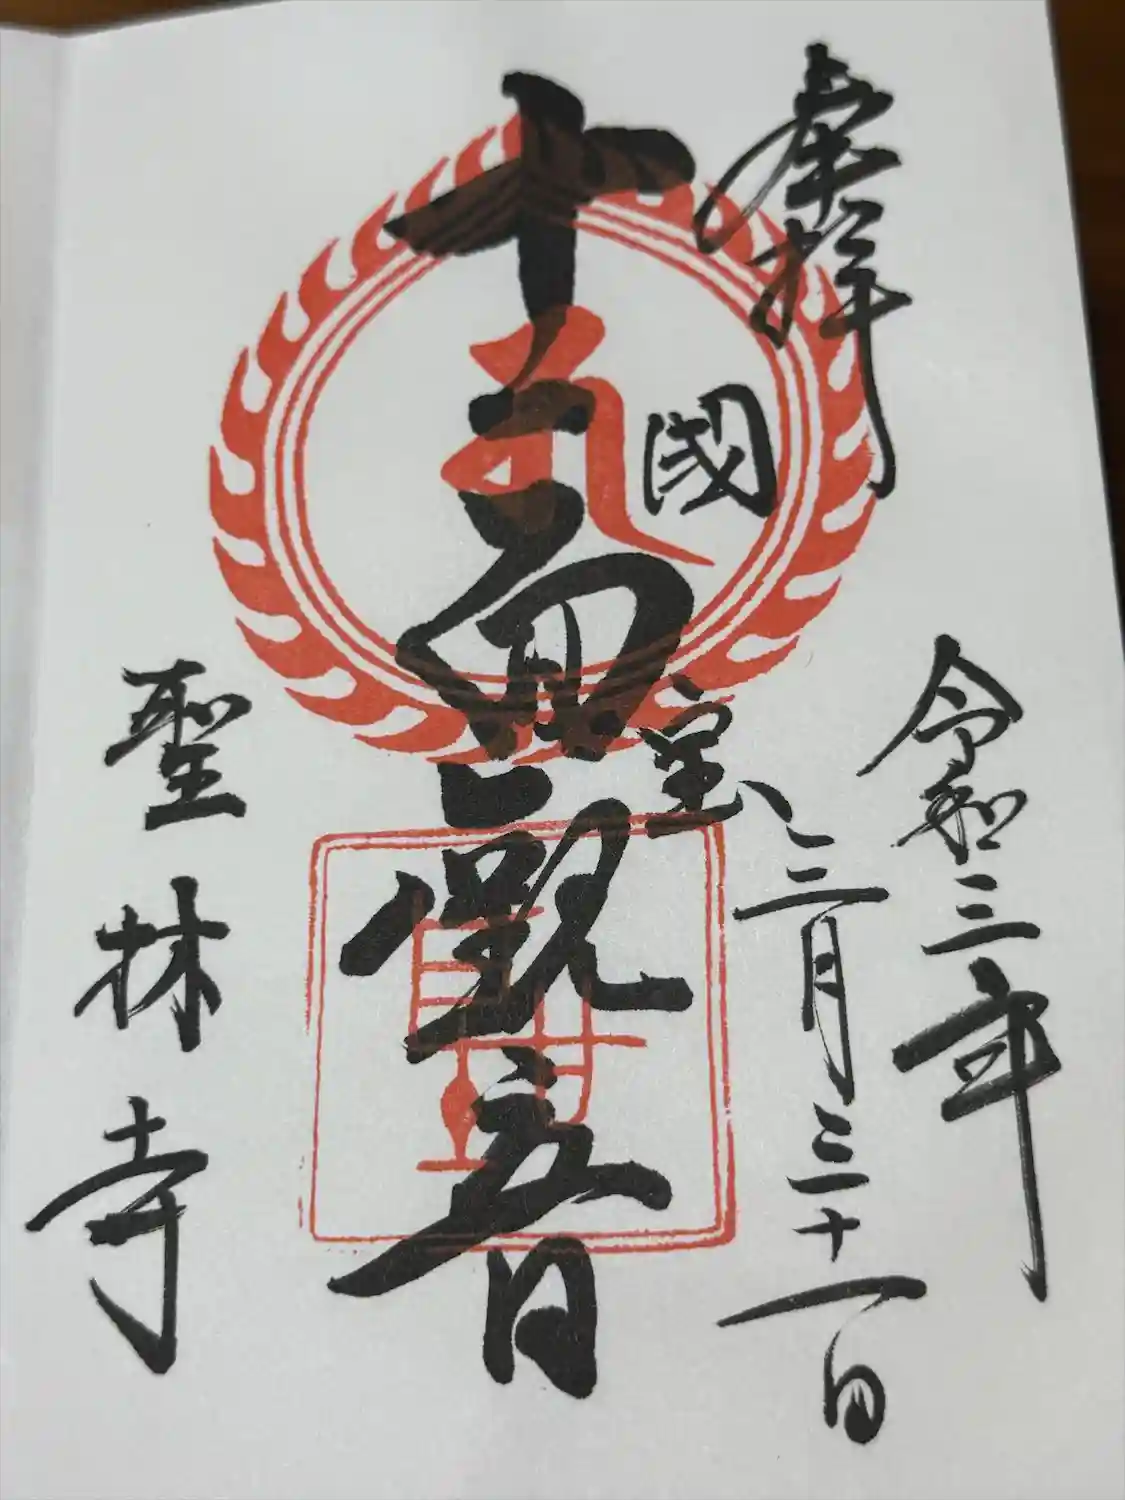 奉拝
令和三年
三月三十一日
國宝
十一面観音
聖林寺